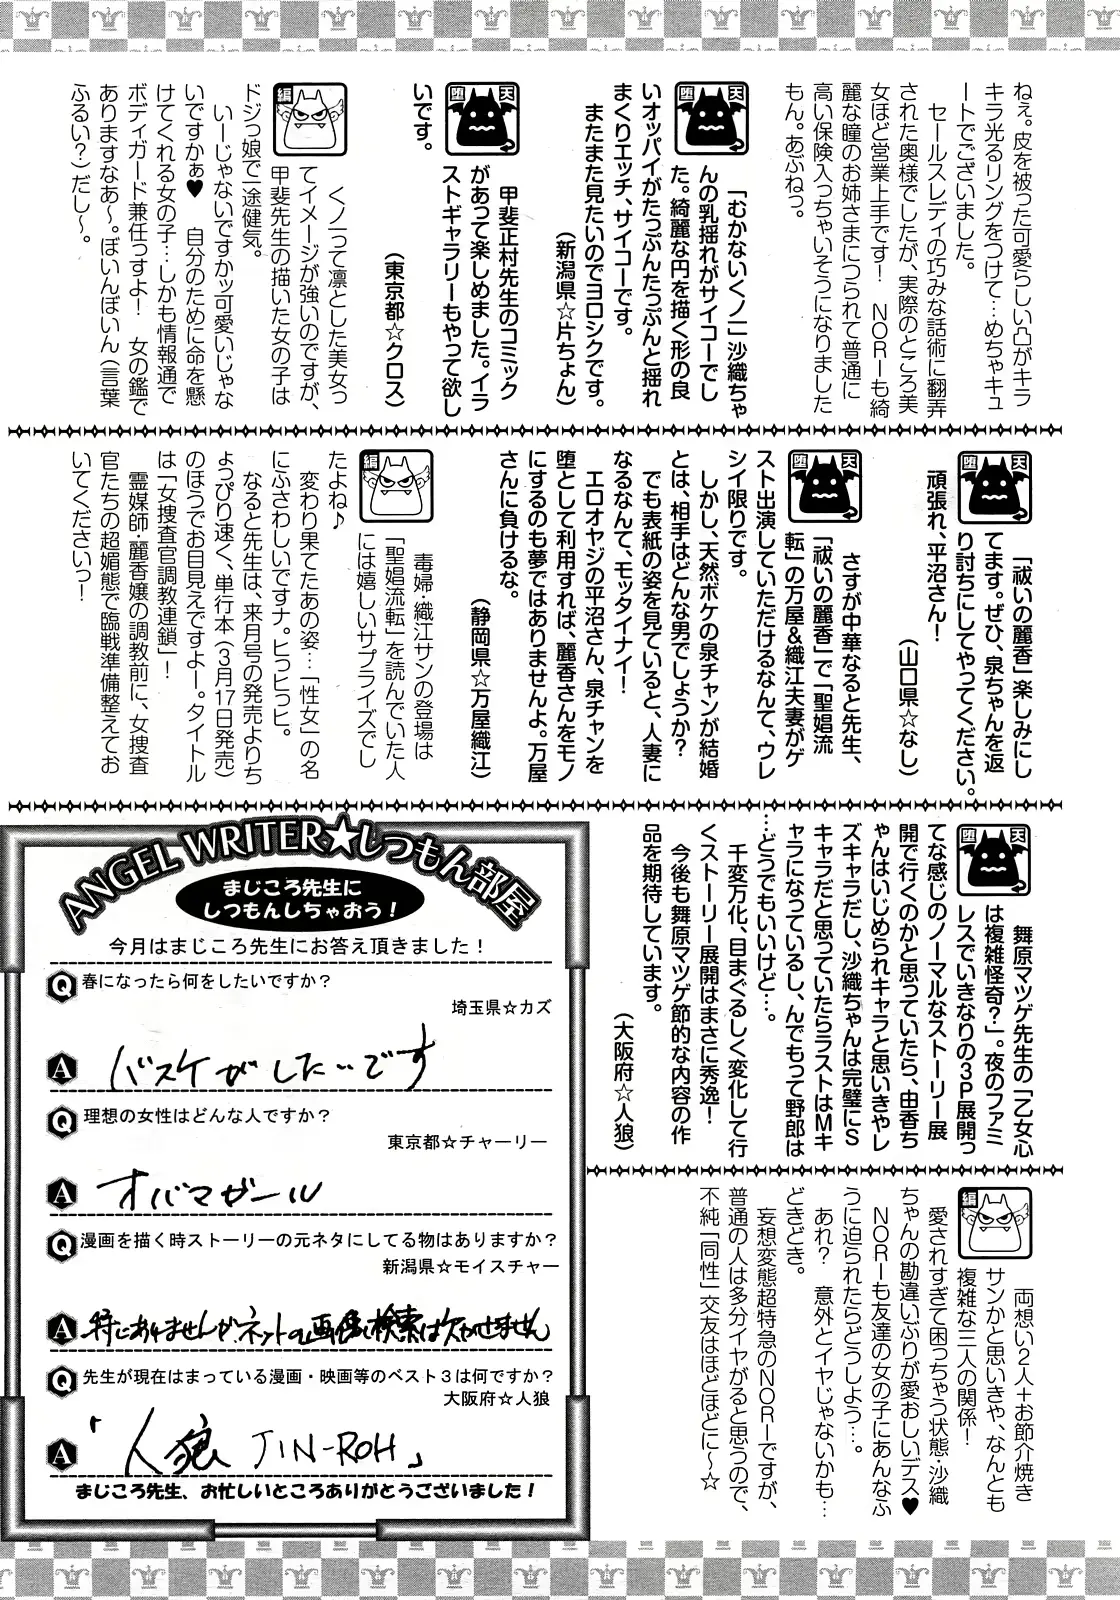 ねぇ。皮を被った可愛らしい凸がキラ
キラ光るリングをつけて…めちゃキュ
ートでございました。
セールスレディの巧みな話術に翻弄
された奥様でしたが、実際のところ美
女ほど営業上手です！　NORーも綺
麗な瞳のお姉さまにつられて普通に
高い保険入っちゃいそうになりました
もん。あぶねっ。
天
堕
「むかないくノ一」沙織ちゃ
んの乳揺れがサイコーでし
た。綺麗な円を描く形の良
いオッパイがたっぷんたっぷんと揺れ
まくりエッチ、サイコーです。
またまた見たいのでヨロシクです。
（新潟県☆片ちょん）
天
堕
甲斐正村先生のコミック
があって楽しめました。イラ
ストギャラリーもやって欲し
いです。
（東京都☆クロス）
編
くノ一って凛とした美女っ
てイメージが強いのですが、
甲斐先生の描いた女の子は
ドジっ娘で一途健気。
いーじゃないですかッ可愛いじゃな
いですかぁ♥　自分のために命を懸
けてくれる女の子…しかも情報通で
ボディガード兼任っすよ！　女の鑑で
ありますなあ～。ぼいんぼいん（言葉
ふるい？）だし～。
天
堕
「祓いの麗香」楽しみにし
てます。ぜひ、泉ちゃんを返
り討ちにしてやってください。
頑張れ、平沼さん！
（山口県☆なし）
天
堕
さすが中華なると先生、
「祓いの麗香」で「聖娼流
転」の万屋＆織江夫妻がゲ
スト出演していただけるなんて、ウレ
シイ限りです。
しかし、天然ボケの泉チャンが結婚
とは、相手はどんな男でしょうか？
でも表紙の姿を見ていると、人妻に
なるなんて、モッタイナイ！
エロオヤジの平沼さん、泉チャンを
堕として利用すれば、麗香さんをモノ
にするのも夢ではありませんよ。万屋
さんに負けるな。
（静岡県☆万屋織江）
編
毒婦・織江サンの登場は
「聖娼流転」を読んでいた人
には嬉しいサプライズでし
たよね♪
変わり果てたあの姿…「性女」の名
にふさわしいですナ。ヒっヒっヒ。
なると先生は、来月号の発売よりち
ょっぴり速く、単行本（3月17日発売）
のほうでお目見えですよー。タイトル
は「女捜査官調教連鎖」！
霊媒師・麗香嬢の調教前に、女捜査
官たちの超媚態で臨戦準備整えてお
いてくださいっ！
天
堕
舞原マツゲ先生の「乙女心
は複雑怪奇？」。夜のファミ
レスでいきなりの3P展開っ
てな感じのノーマルなストーリー展
開で行くのかと思っていたら、由香ち
ゃんはいじめられキャラと思いきやレ
ズキャラだし、沙織ちゃんは完璧にS
キャラだと思っていたらラストはMキ
ャラになっているし、んでもって野郎は
…どうでもいいけど…。
千変万化、目まぐるしく変化して行
くストーリー展開はまさに秀逸！
今後も舞原マツゲ節的な内容の作
品を期待しています。
（大阪府☆人狼）
編
両想い2人＋お節介焼き
サンかと思いきや、なんとも
複雑な三人の関係！
愛されすぎて困っちゃう状態・沙織
ちゃんの勘違いぶりが愛おしいデス♥
NORーも友達の女の子にあんなふ
うに迫られたらどうしよう…。
あれ？　意外とイヤじゃないかも…
どきどき。
妄想変態超特急のNORーですが、
普通の人は多分イヤがると思うので、
不純「同性」交友はほどほどに～☆
ANGEL WRITER★しつもん部屋
まじころ先生に
しつもんしちゃおう！
今月はまじころ先生にお答え頂きました！
Q 春になったら何をしたいですか？
埼玉県☆カズ
A バスケがしたいです
Q 理想の女性はどんな人ですか？
東京都☆チャーリー
A オバマガール
Q 漫画を描く時ストーリーの元ネタにしてる物はありますか？
新潟県☆モイスチャー
A 特にありませんが、ネットの画像検索は欠かせません
Q 先生が現在はまっている漫画・映画等のベスト3は何ですか？
大阪府☆人狼
A 「人狼 JIN-ROH」
まじころ先生、お忙しいところありがとうございました！